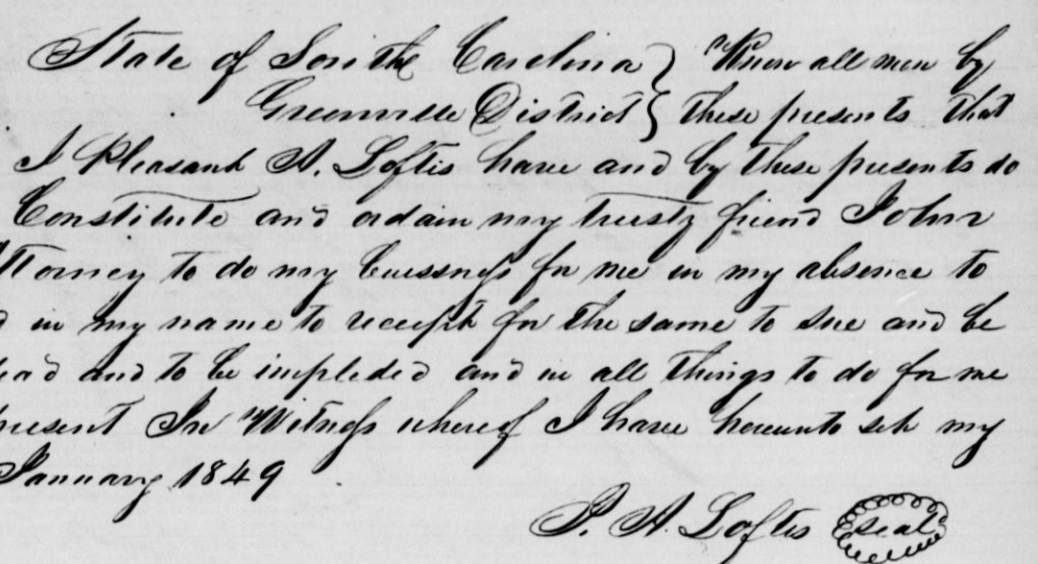 State of South Carolina } Know all men by
Greenville District } these presents that
I Pleasant A. Loftis have and by these presents do
Constitute and ordain my trusty friend John
ttorney to do my buissness for me in my absence to
d in my name to receipt for the same to sue and be
ead and to be impleded and in all things to do for me
present In Witness whereof I have hereunto set my
January 1849
P. A. Loftis seal